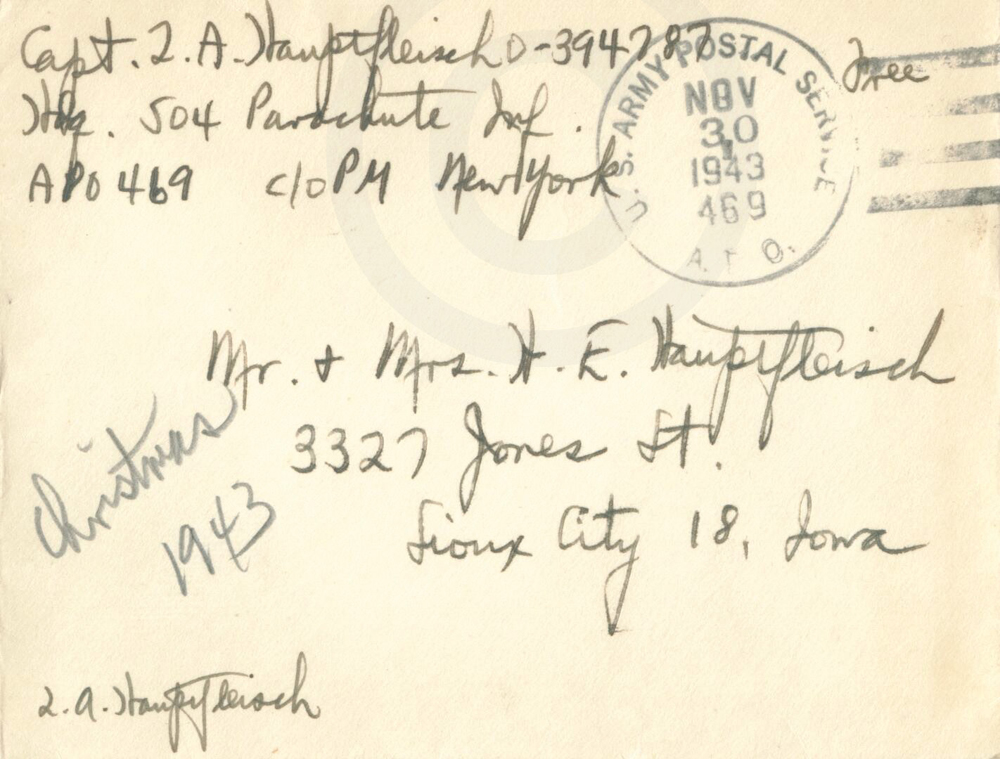 Capt. L. A. Hauptfleisch O-394787
Free
Hq. 504 Parachute Inf.
APO 469 c/o PM New York
U.S. ARMY POSTAL SERVICE
NOV
30
1943
469
A. P. O.
Mr. & Mrs. H. E. Hauptfleisch
3327 Jones St.
Sioux City 18, Iowa
Christmas
1943
L. A. Hauptfleisch